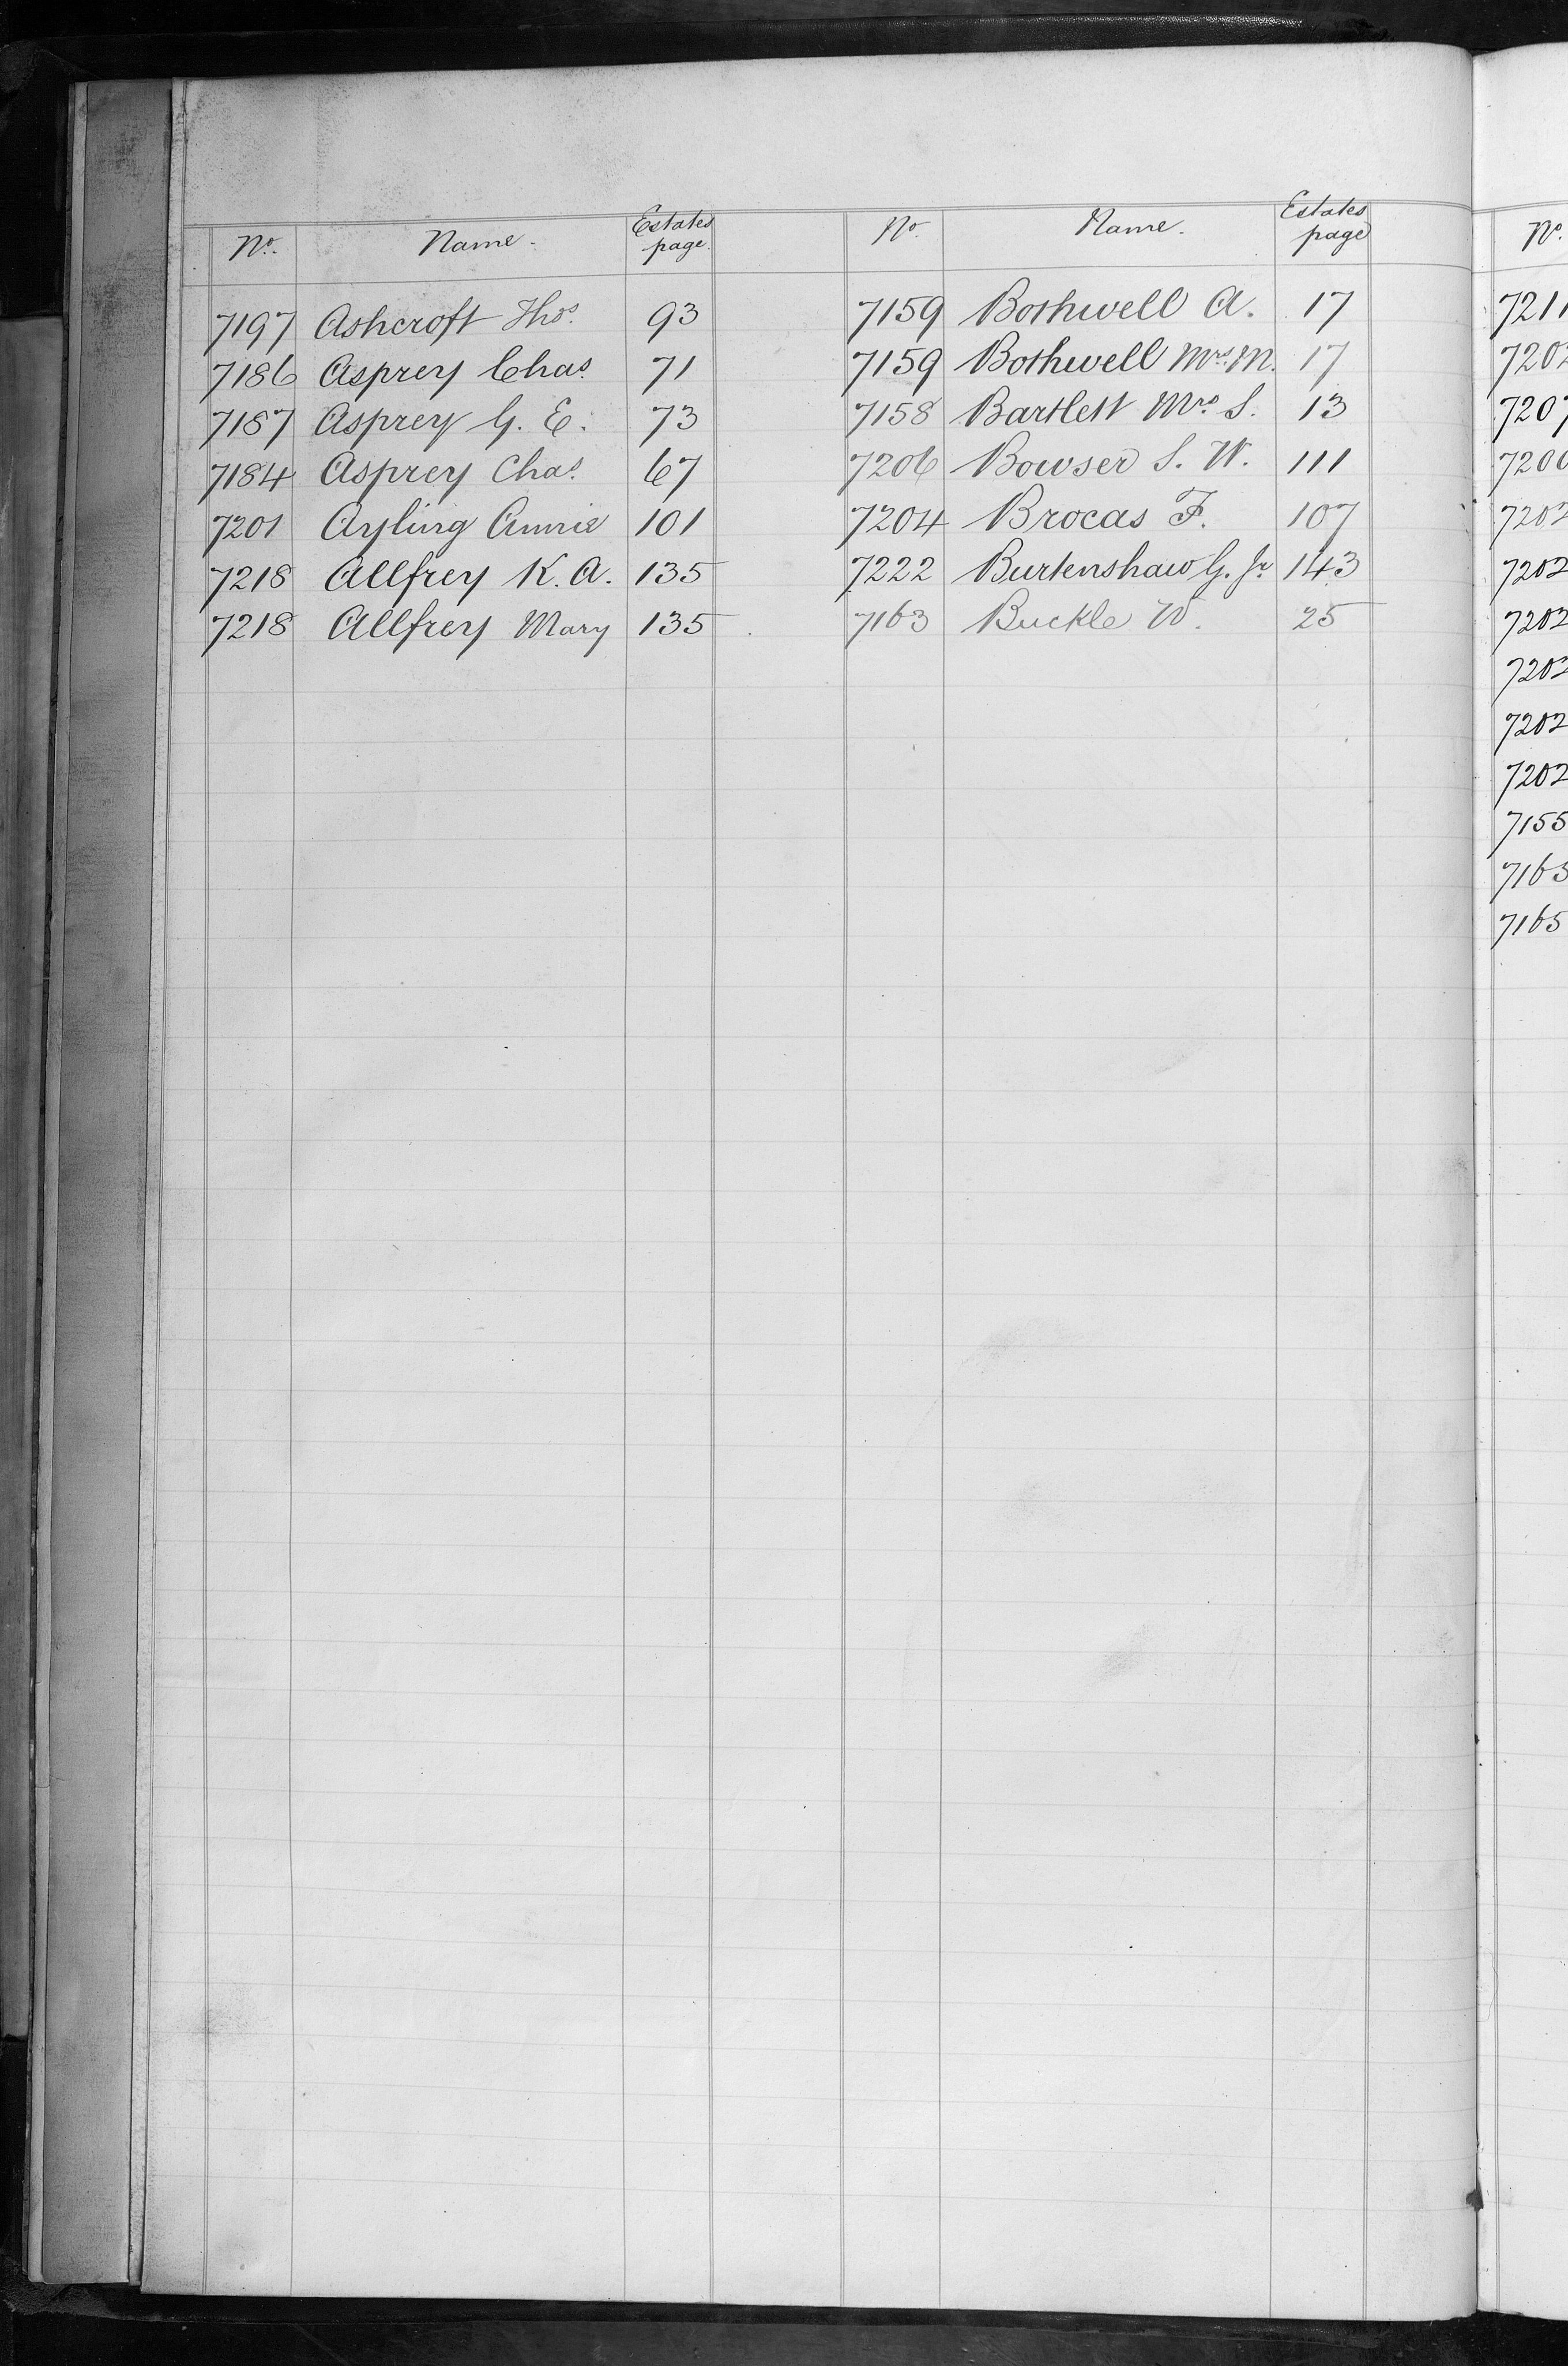 No. Name. Estates page.
7197 Ashcroft Thos. 93
7186 Asprey Chas. 71
7187 Asprey G. E. 73
7184 Asprey Chas. 67
7201 Ayling Annie 101
7218 Allfrey K. A. 135
7218 Allfrey Mary 135
No. Name. Estates page
7159 Bothwell A. 17
7159 Bothwell Mrs. M. 17
7158 Bartlett Mrs S. 13
7206 Bowser S. W. 111
7204 Brocas F. 107
7222 Burtenshaw G. Jr 143
7163 Buckle W. 25
No.
7155
7163
7165